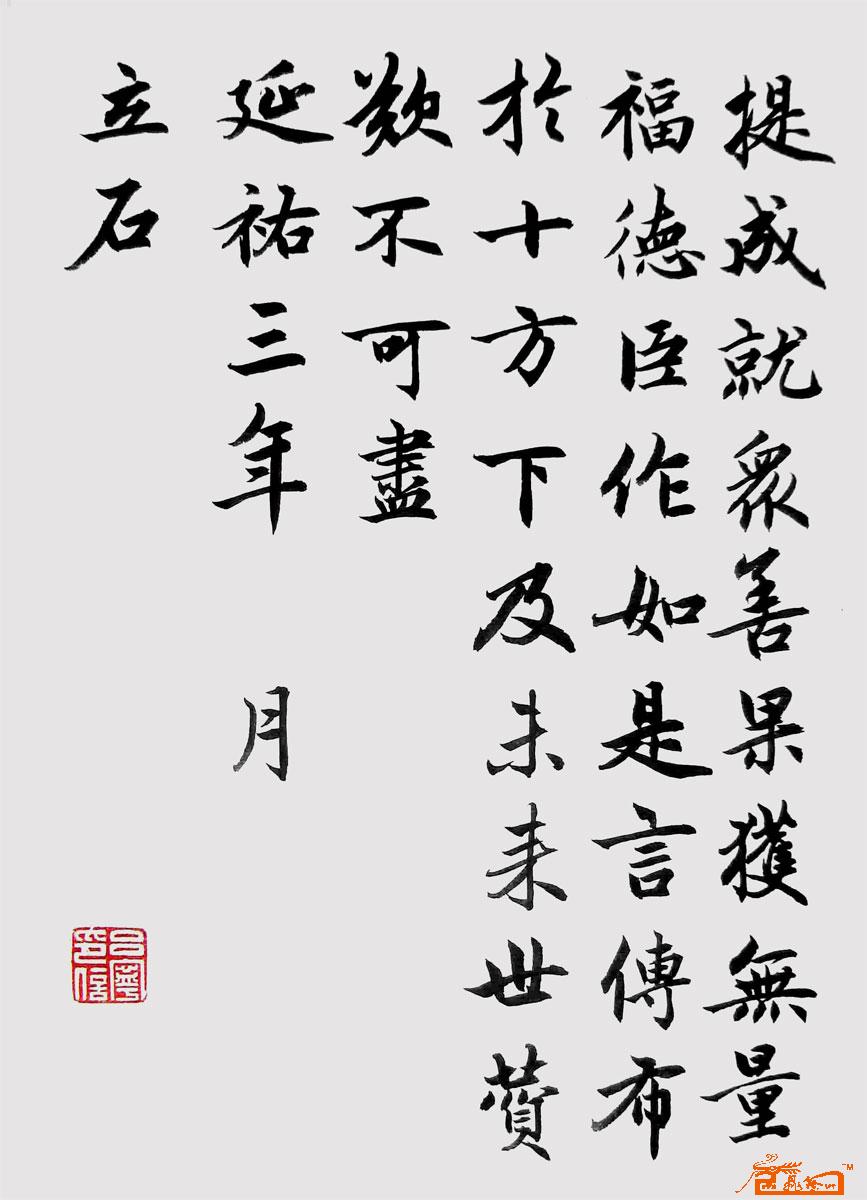 提成就眾善果獲無量
福德臣作如是言傳布
於十方下及未来世蕡
歎不可盡
延祐三年　月
立石
吕寧
印信